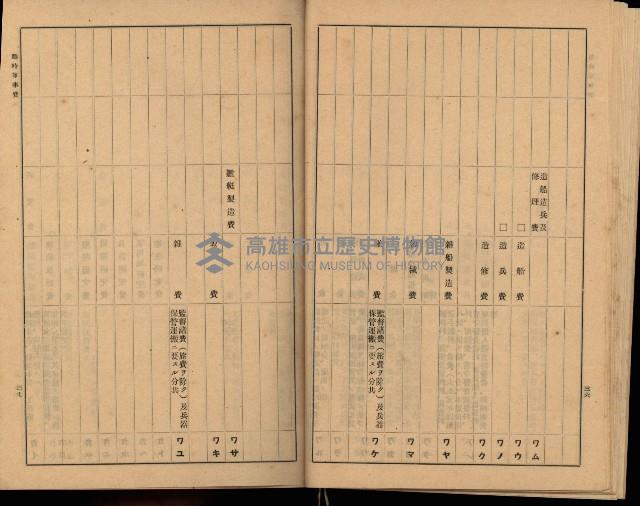 造船造兵及
修理費
ワム
□造船費
ワウ
□造兵費
ワノ
造修費
ワク
雑船製造費
ワヤ
機械費
ワマ
雑費
監督諸費(旅費ヲ除ク)及兵器
保管運搬ニ要スル分共
ワケ
三六
臨時軍事費
艦艇製造費
ワサ
費
ワキ
雑費
監督諸費(旅費ヲ除ク)及兵器
保管運搬ニ要スル分共
ワユ
高雄市立歷史博物館
KAOHSIUNG MUSEUM OF HISTORY